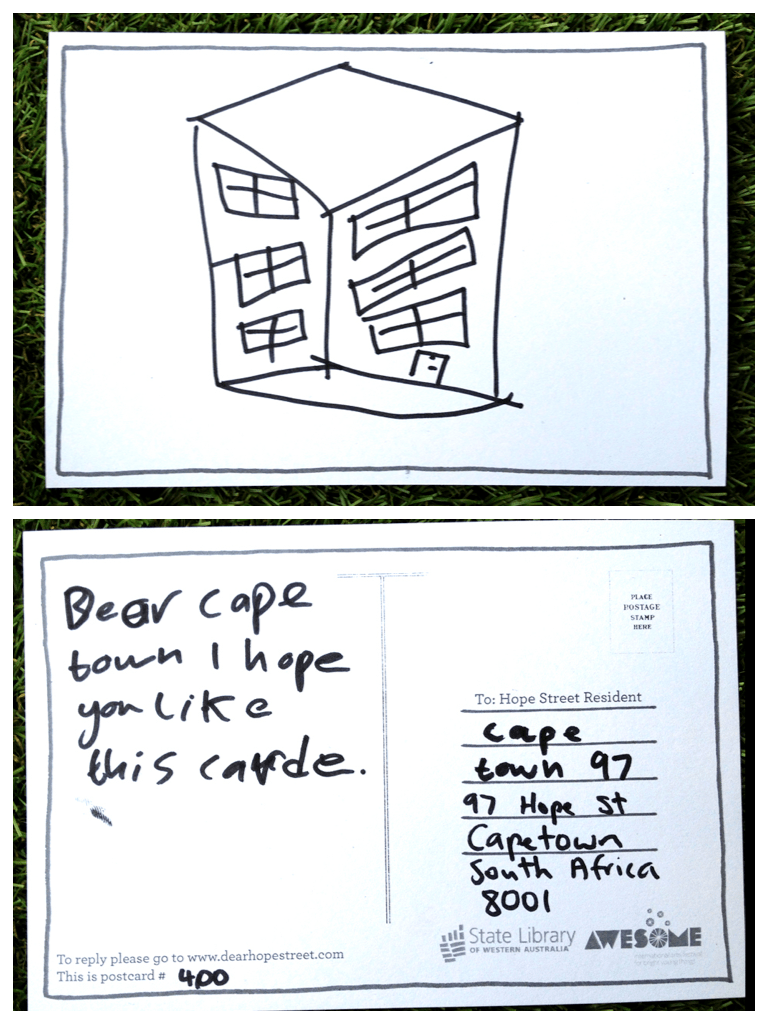 Dear cape
town I hope
you like
this carde.
PLACE
POSTAGE
STAMP
HERE
To: Hope Street Resident
cape
town 97
97 Hope St
Capetown
South Africa
8001
State Library
OF WESTERN AUSTRALIA
AWESOME
To reply please go to www.dearhopestreet.com
This is postcard # 400